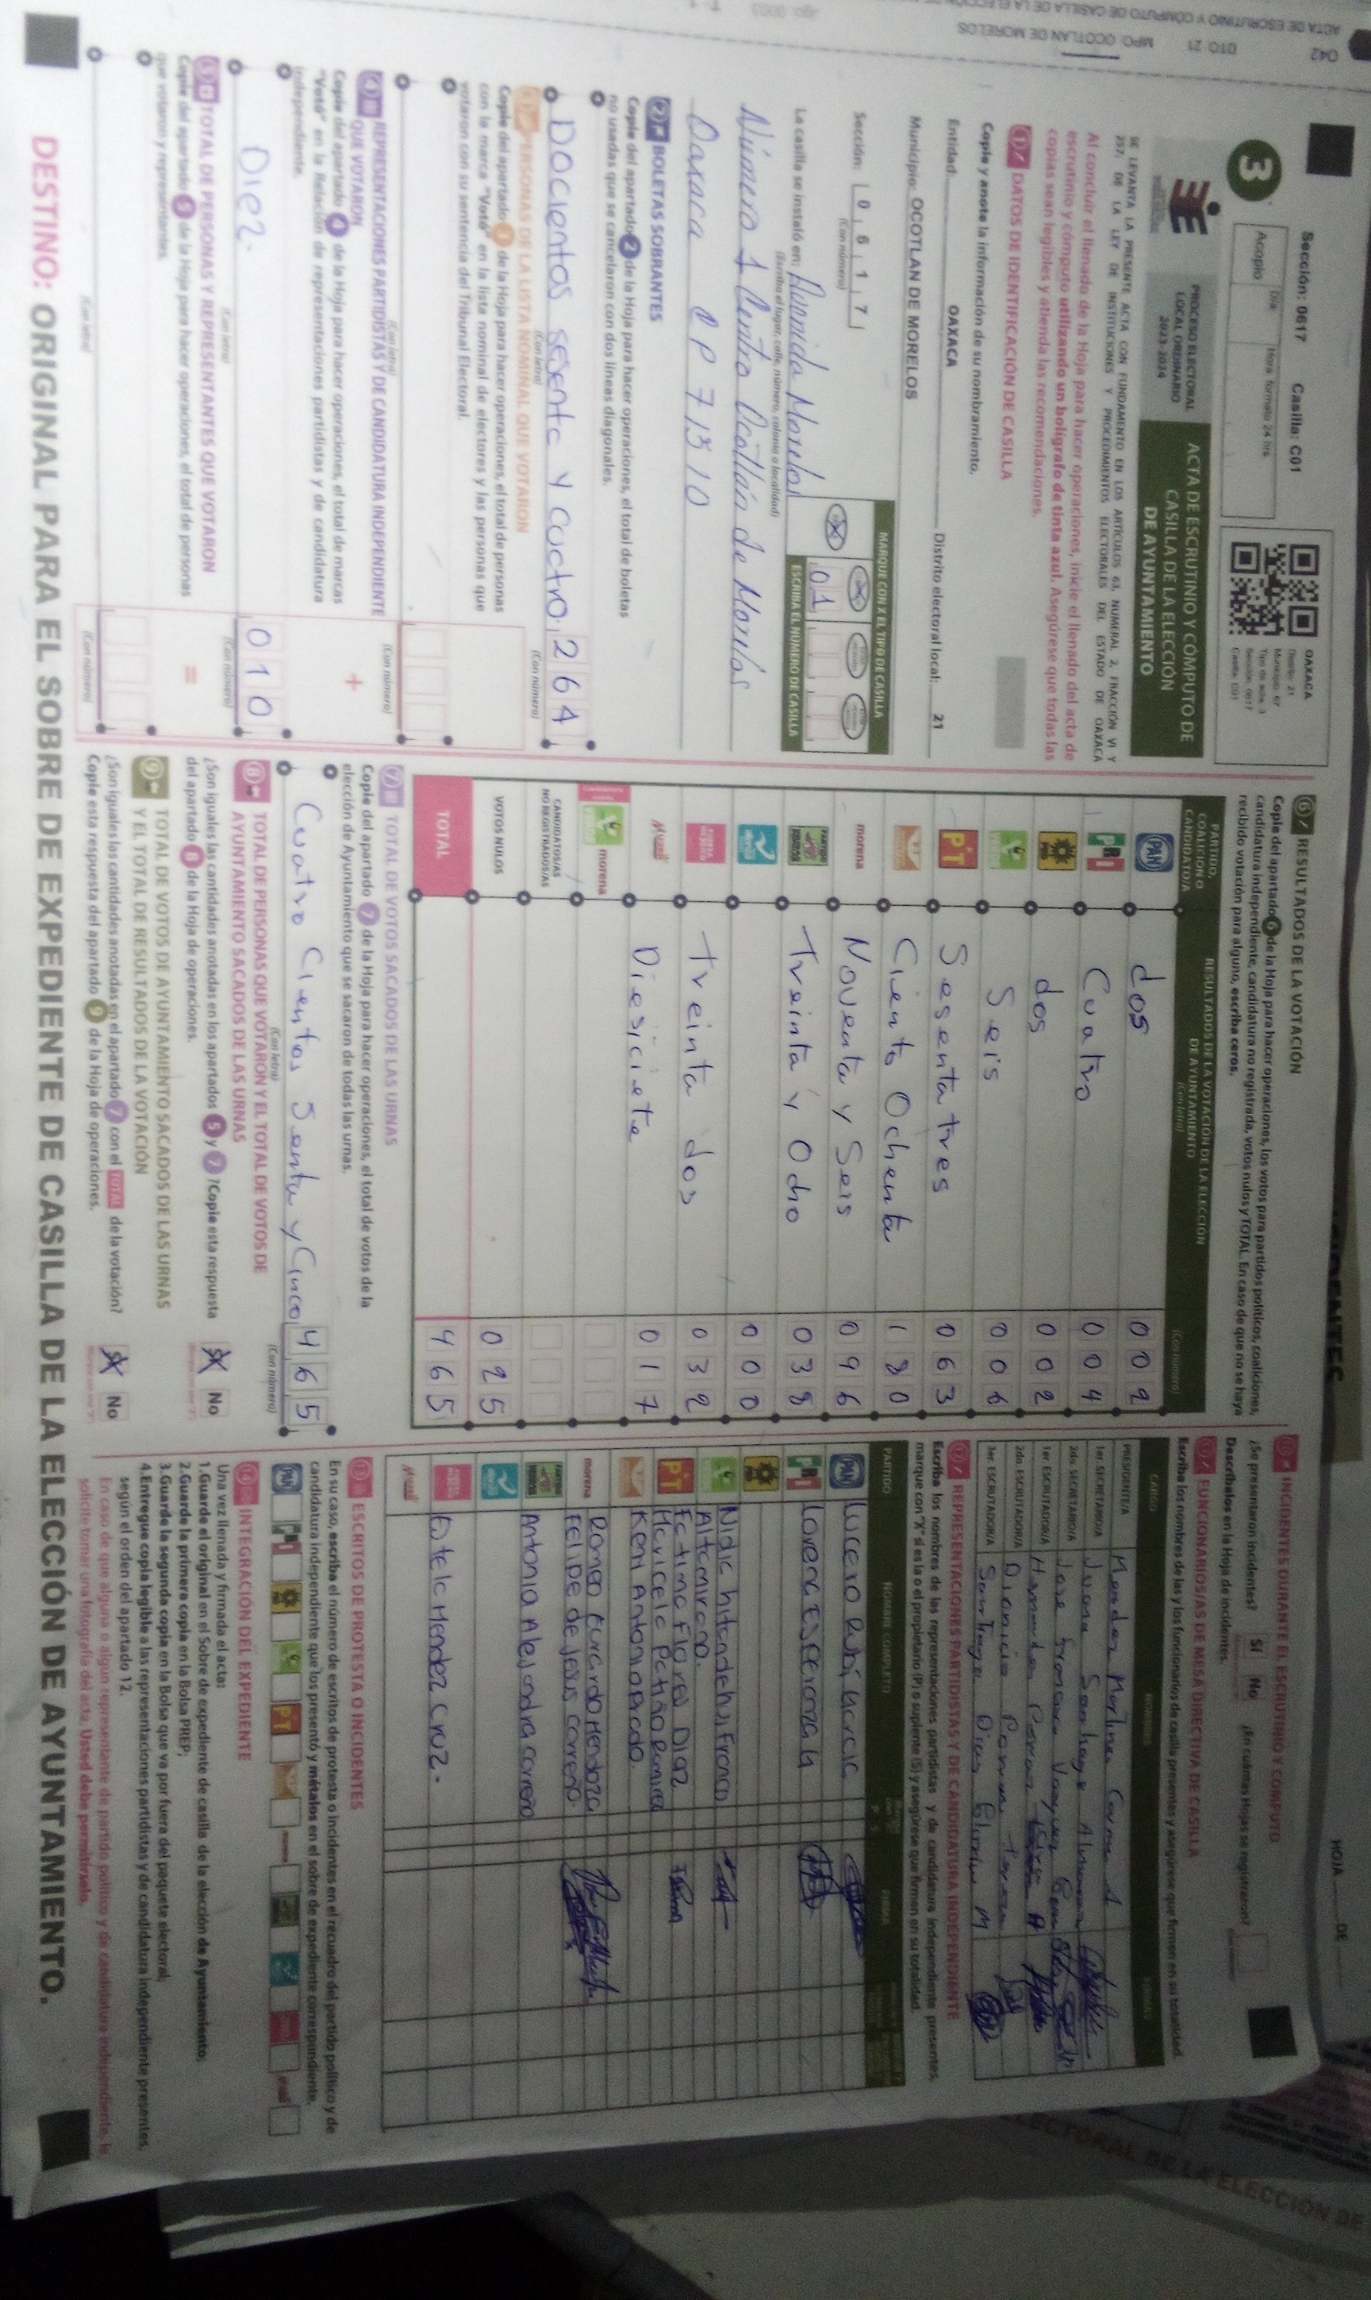 042 DTO: 21 MPO: OCOTLAN DE MORELOS
HOJA DE
Sección: 0617 Casilla: C01
OAXACA
3
Acopio
Día
Hora formato 24 hrs
PROCESO ELECTORAL
LOCAL ORDINARIO
2023-2024
ACTA DE ESCRUTINIO Y CÓMPUTO DE
CASILLA DE LA ELECCIÓN
DE AYUNTAMIENTO
SE LEVANTA LA PRESENTE ACTA CON FUNDAMENTO EN LOS ARTÍCULOS 63, NUMERAL 2, FRACCIÓN VI Y
257, DE LA LEY DE INSTITUCIONES Y PROCEDIMIENTOS ELECTORALES DEL ESTADO DE OAXACA
Al concluir el llenado de la Hoja para hacer operaciones, inicie el llenado del acta de
escrutinio y cómputo utilizando un bolígrafo de tinta azul. Asegúrese que todas las
copias sean legibles y atienda las recomendaciones.
1 DATOS DE IDENTIFICACIÓN DE CASILLA
Copie y anote la información de su nombramiento.
Entidad: OAXACA Distrito electoral local: 21
Municipio: OCOTLAN DE MORELOS
Sección: 0617
(Con número)
MARQUE CON X EL TIPO DE CASILLA
ESCRIBA EL NÚMERO DE CASILLA
01
La casilla se instaló en: Avenida Morelos
(Escriba el lugar, calle, número, colonia o localidad)
Número 1 Centro Ocotlán de Morelos
Oaxaca CP 71510
2 BOLETAS SOBRANTES
Copie del apartado 2 de la Hoja para hacer operaciones, el total de boletas
no usadas que se cancelaron con dos líneas diagonales.
Docientos sesenta y cuatro 264
(Con letra) (Con número)
3 PERSONAS DE LA LISTA NOMINAL QUE VOTARON
Copie del apartado 3 de la Hoja para hacer operaciones, el total de personas
con la marca "Votó" en la lista nominal de electores y las personas que
votaron con su sentencia del Tribunal Electoral.
(Con letra) (Con número)
4 REPRESENTACIONES PARTIDISTAS Y DE CANDIDATURA INDEPENDIENTE
QUE VOTARON
Copie del apartado 4 de la Hoja para hacer operaciones, el total de marcas
"Votó" en la Relación de representaciones partidistas y de candidatura
independiente.
Diez. 010
(Con letra) (Con número)
5 TOTAL DE PERSONAS Y REPRESENTANTES QUE VOTARON
Copie del apartado 5 de la Hoja para hacer operaciones, el total de personas
que votaron y representantes.
(Con letra) (Con número)
6 RESULTADOS DE LA VOTACIÓN
Copie del apartado 6 de la Hoja para hacer operaciones, los votos para partidos políticos, coaliciones,
candidatura independiente, candidatura no registrada, votos nulos y TOTAL. En caso de que no se haya
recibido votación para alguno, escriba ceros.
PARTIDO,
COALICIÓN O
CANDIDATO/A
RESULTADOS DE LA VOTACIÓN DE LA ELECCIÓN
DE AYUNTAMIENTO
(Con letra) (Con número)
PAN dos 002
PRI Cuatro 004
dos 002
Seis 006
PT Sesenta tres 063
Ciento Ochenta 180
morena Noventa y Seis 096
Treinta y Ocho 038
000
treinta dos 032
Diesiciete 017
morena
CANDIDATOS/AS
NO REGISTRADOS/AS
VOTOS NULOS 025
TOTAL 465
7 TOTAL DE VOTOS SACADOS DE LAS URNAS
Copie del apartado 7 de la Hoja para hacer operaciones, el total de votos de la
elección de Ayuntamiento que se sacaron de todas las urnas.
Cuatro Cientos Senta y Cinco 465
(Con letra) (Con número)
8 TOTAL DE PERSONAS QUE VOTARON Y EL TOTAL DE VOTOS DE
AYUNTAMIENTO SACADOS DE LAS URNAS
¿Son iguales las cantidades anotadas en los apartados 5 y 7 ?Copie esta respuesta
del apartado 8 de la Hoja de operaciones.
No
9 TOTAL DE VOTOS DE AYUNTAMIENTO SACADOS DE LAS URNAS
Y EL TOTAL DE RESULTADOS DE LA VOTACIÓN
¿Son iguales las cantidades anotadas en el apartado 7 con el TOTAL de la votación?
Copie esta respuesta del apartado 9 de la Hoja de operaciones.
No
10 INCIDENTES DURANTE EL ESCRUTINIO Y CÓMPUTO
¿Se presentaron incidentes? SÍ No ¿En cuántas Hojas se registraron?
Descríbalos en la Hoja de incidentes.
11 FUNCIONARIOS/AS DE MESA DIRECTIVA DE CASILLA
Escriba los nombres de las y los funcionarios de casilla presentes y asegúrese que firmen en su totalidad.
CARGO
PRESIDENTE/A
1er. SECRETARIO/A
2do. SECRETARIO/A
1er. ESCRUTADOR/A
2do. ESCRUTADOR/A
3er. ESCRUTADOR/A Santiago Dias
12 REPRESENTACIONES PARTIDISTAS Y DE CANDIDATURA INDEPENDIENTE
Escriba los nombres de las representaciones partidistas y de candidatura independiente presentes,
marque con "X" si es la o el propietario (P) o suplente (S) y asegúrese que firmen en su totalidad.
PARTIDO NOMBRE COMPLETO
PAN Lucero Rubí García
PRI
PT Fatima Flores Diaz
morena Romeo Gerardo Mendoza
Felipe de Jesus Carreño.
Antonia Alejandra Carreño
Estela Mendez Cruz.
13 ESCRITOS DE PROTESTA O INCIDENTES
En su caso, escriba el número de escritos de protesta o incidentes en el recuadro del partido político y de
candidatura independiente que los presentó y métalos en el sobre de expediente correspondiente.
14 INTEGRACIÓN DEL EXPEDIENTE
Una vez llenada y firmada el acta:
1.Guarde el original en el Sobre de expediente de casilla de la elección de Ayuntamiento;
2.Guarde la primera copia en la Bolsa PREP;
3.Guarde la segunda copia en la Bolsa que va por fuera del paquete electoral;
4.Entregue copia legible a las representaciones partidistas y de candidatura independiente presentes,
según el orden del apartado 12.
En caso de que alguna o algún representante de partido político y de candidatura independiente, le
solicite tomar una fotografía del acta, Usted debe permitírselo.
DESTINO: ORIGINAL PARA EL SOBRE DE EXPEDIENTE DE CASILLA DE LA ELECCIÓN DE AYUNTAMIENTO.